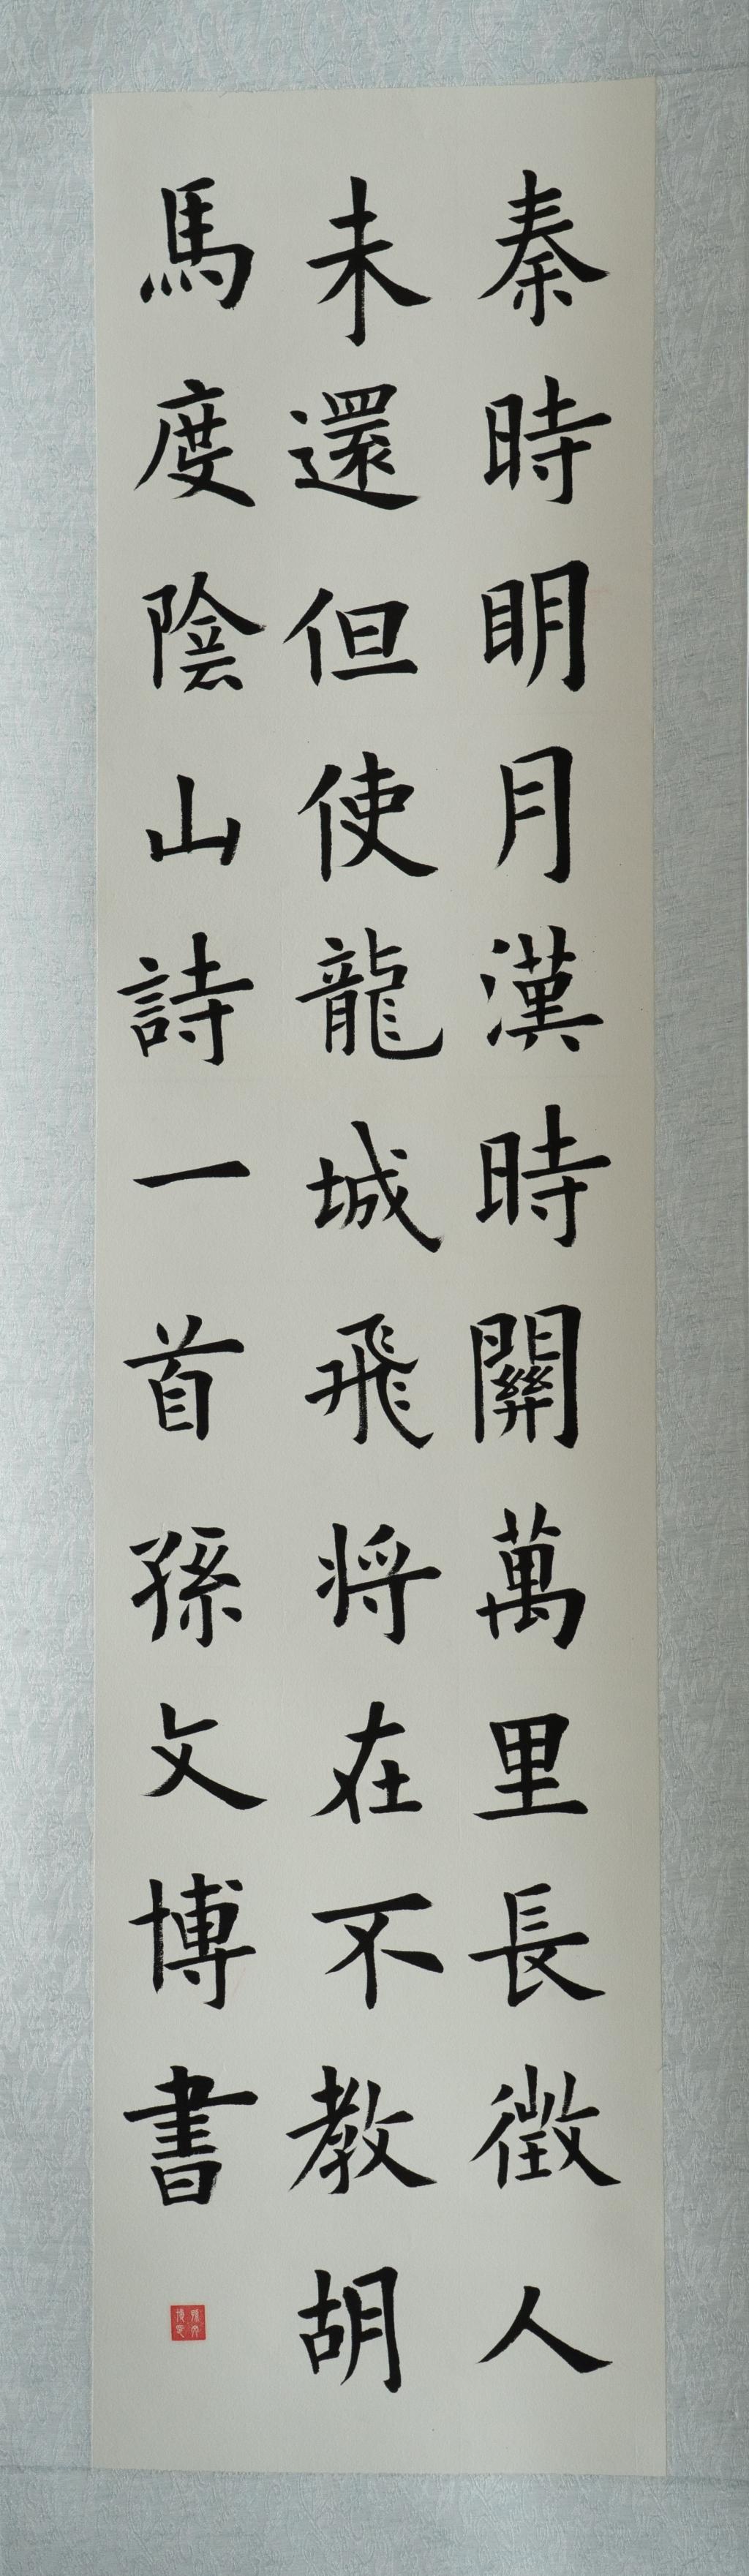 秦時眀月漢時關萬里長徵人
未還但使龍城飛将在不教胡
馬度陰山詩一首孫文博書